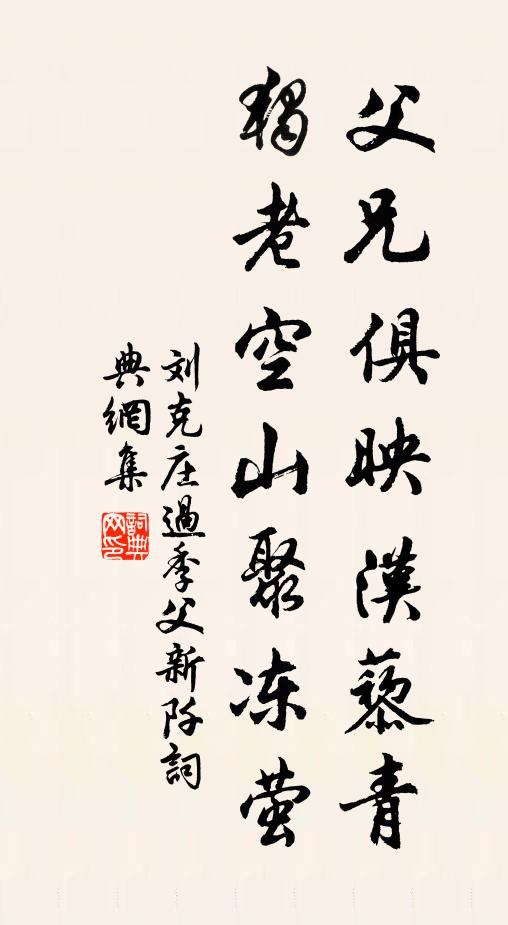 父兄俱映漢藜青
獨老空山聚冻萤
刘克庄過季父新阡詞
典網集
詞典
网印